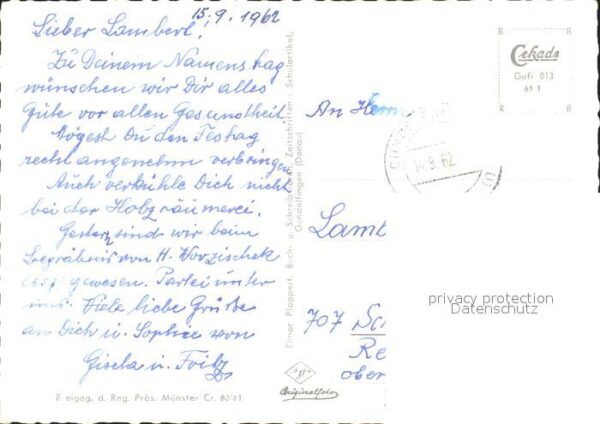 15.9.1962
Lieber Lambert!
Zu Deinem Namenstag
wünschen wir Dir alles
Gute vor allen Gesundheit
Mögest Du den Festag
recht angenehm verbringen
Auch verkühle Dich nicht
bei der Holzräumerei.
Gestern sind wir beim
Begräbnis von H. Worzischek
gewesen. Partei unter
uns. Viele liebe Grüße
an Dich u. Sophie von
Gisela u. Fritz
F eigeg. d. Reg. Präs. Münster Cr. 80/61
Elmar Plappert, Buch- u. Schreibwaren, Zeitschriften - Schulartikel,
Gundelfingen (Donau)
Originalfoto
Cekade
Gufi 013
61 1
14.9.62
An Herrn
Lamb
707 Sc
Re
ober
privacy protection
Datenschutz